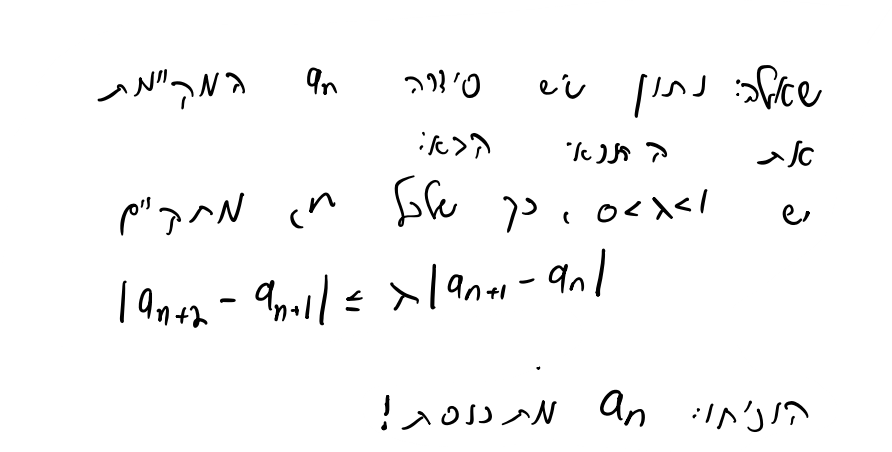 שאלה: נתון שיש סידרה aₙ המקיימת
את התנאי הבא:
יש 0<λ<1, כך שלכל n, מתקיים
|aₙ₊₂ - aₙ₊₁| ≤ λ|aₙ₊₁ - aₙ|
הוכיחו: aₙ מתכנסת!